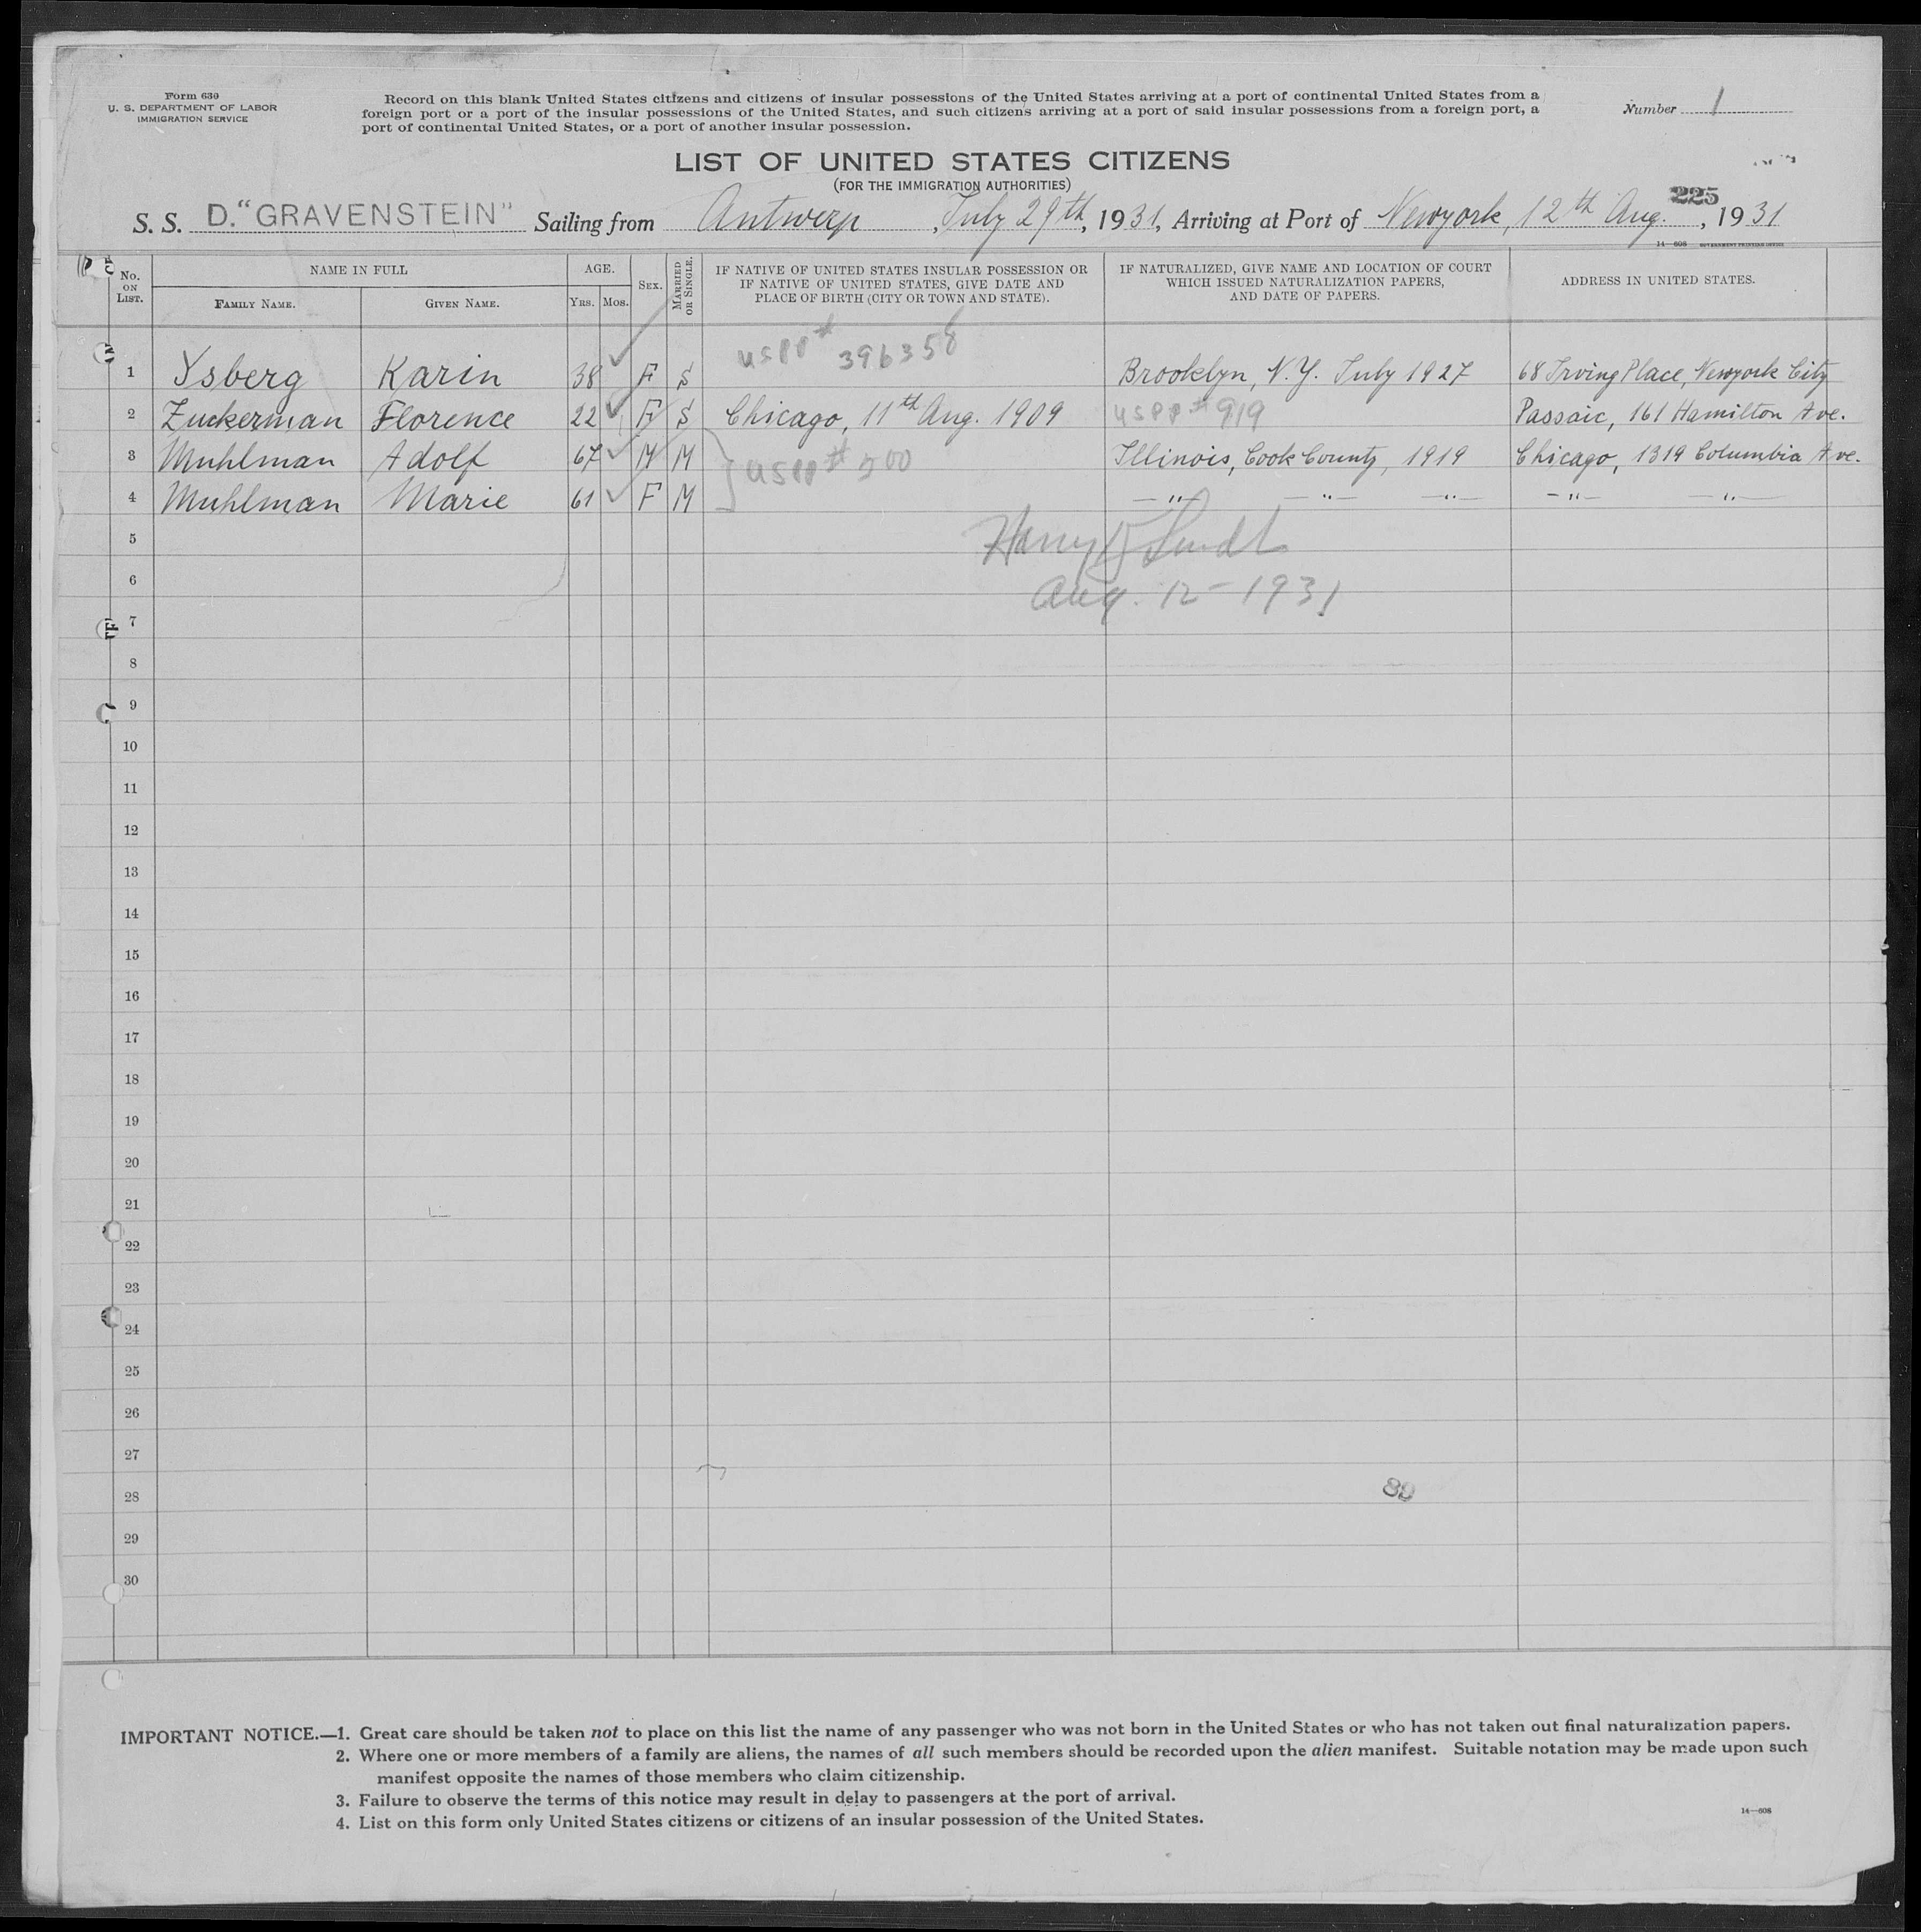 Form 630
U. S. DEPARTMENT OF LABOR
IMMIGRATION SERVICE
Record on this blank United States citizens and citizens of insular possessions of the United States arriving at a port of continental United States from a
foreign port or a port of the insular possessions of the United States, and such citizens arriving at a port of said insular possessions from a foreign port, a
port of continental United States, or a port of another insular possession.
Number 1
LIST OF UNITED STATES CITIZENS
(FOR THE IMMIGRATION AUTHORITIES)
225
S. S. D. "GRAVENSTEIN" Sailing from Antwerp, July 29th, 1931, Arriving at Port of Newyork, 12th Aug., 1931
14—608 GOVERNMENT PRINTING OFFICE
No. ON LIST. NAME IN FULL AGE. SEX. MARRIED OR SINGLE. IF NATIVE OF UNITED STATES INSULAR POSSESSION OR IF NATIVE OF UNITED STATES, GIVE DATE AND PLACE OF BIRTH (CITY OR TOWN AND STATE). IF NATURALIZED, GIVE NAME AND LOCATION OF COURT WHICH ISSUED NATURALIZATION PAPERS, AND DATE OF PAPERS. ADDRESS IN UNITED STATES.
FAMILY NAME. GIVEN NAME. YRS. MOS.
USPP # 396358
1 Ysberg Karin 38 F S Brooklyn, N.Y. July 1927 68 Irving Place, Newyork City
2 Zuckerman Florence 22 F S Chicago, 11th Aug. 1909 USPP # 919 Passaic, 161 Hamilton Ave.
3 Muhlman Adolf 67 M M USPP # 500 Illinois, Cook County, 1919 Chicago, 1319 Columbia Ave.
4 Muhlman Marie 61 F M —"— —"— —"— —"— —"—
5 Harry
6 Aug. 12 - 1931
7
8
9
10
11
12
13
14
15
16
17
18
19
20
21
22
23
24
25
26
27
28 89
29
30
IMPORTANT NOTICE.—1. Great care should be taken not to place on this list the name of any passenger who was not born in the United States or who has not taken out final naturalization papers.
2. Where one or more members of a family are aliens, the names of all such members should be recorded upon the alien manifest. Suitable notation may be made upon such
manifest opposite the names of those members who claim citizenship.
3. Failure to observe the terms of this notice may result in delay to passengers at the port of arrival.
4. List on this form only United States citizens or citizens of an insular possession of the United States.
14—608